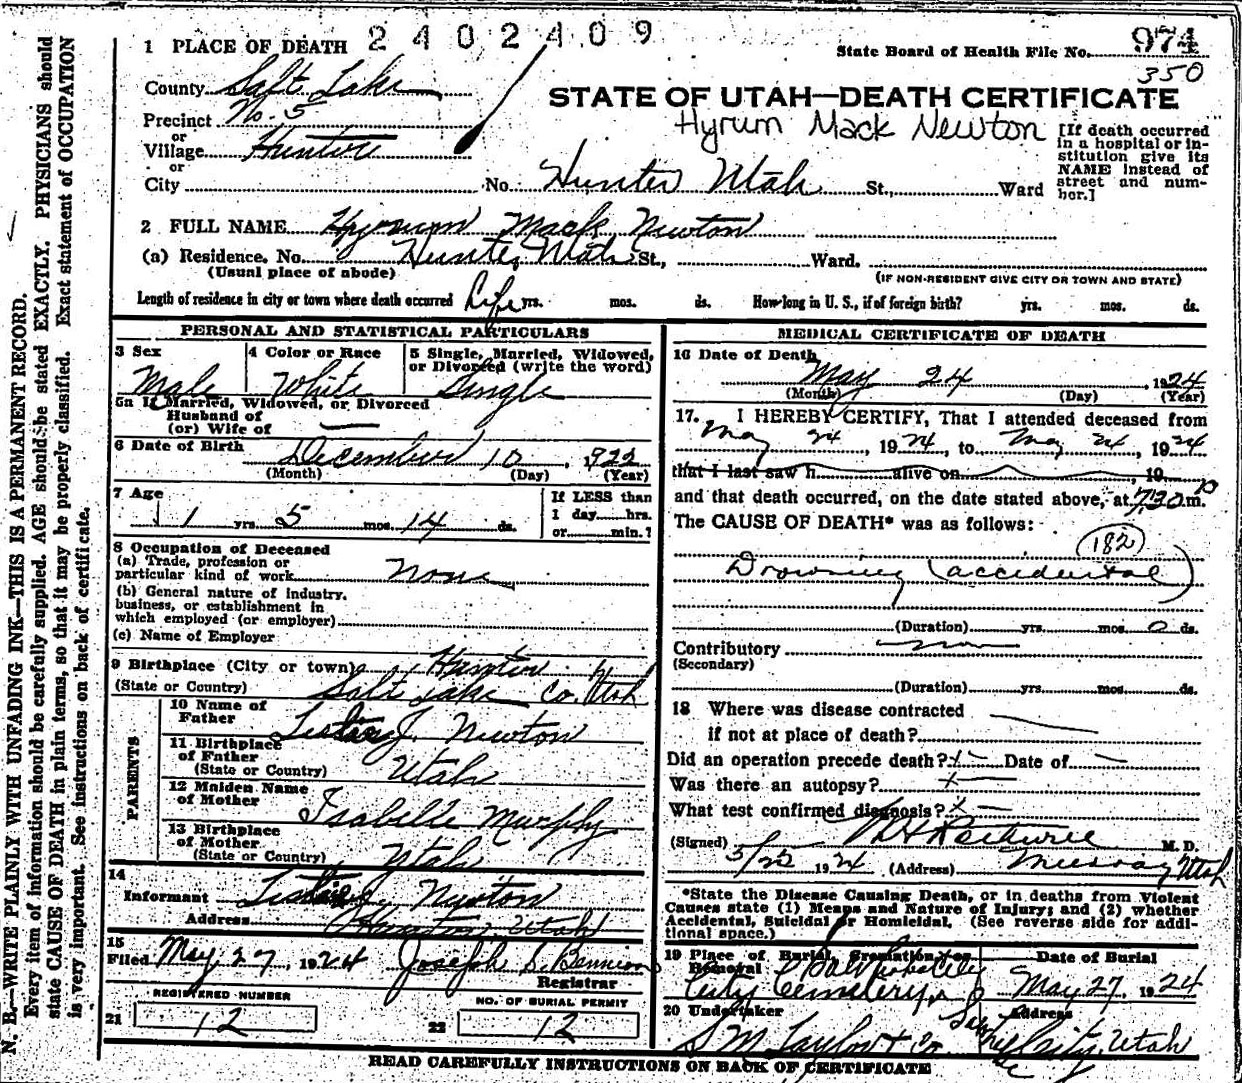 2402409
1 PLACE OF DEATH
State Board of Health File No. 974
350
County Salt Lake
STATE OF UTAH—DEATH CERTIFICATE
Precinct No. 5
Hyrum Mack Newton
or
Village Hunter
or
City No. Hunter Utah St., Ward
[If death occurred
in a hospital or in-
stitution give its
NAME instead of
street and num-
ber.]
2 FULL NAME Hyrum Mack Newton
(a) Residence. No. Hunter, Utah St., Ward.
(Usual place of abode) (IF NON-RESIDENT GIVE CITY OR TOWN AND STATE)
Length of residence in city or town where death occurred Life yrs. mos. ds. How long in U. S., if of foreign birth? yrs. mos. ds.
PERSONAL AND STATISTICAL PARTICULARS
3 Sex 4 Color or Race 5 Single, Married, Widowed,
or Divorced (write the word)
Male White Single
5a If Married, Widowed, or Divorced
Husband of
(or) Wife of —
6 Date of Birth December 10, 1922
(Month) (Day) (Year)
7 Age
1 yrs. 5 mos. 14 ds.
If LESS than
1 day hrs.
or min.?
8 Occupation of Deceased
(a) Trade, profession or
particular kind of work none
(b) General nature of industry,
business, or establishment in
which employed (or employer)
(c) Name of Employer
9 Birthplace (City or town) Hunter
(State or Country) Salt Lake Co. Utah
PARENTS
10 Name of
Father J. Newton
11 Birthplace
of Father
(State or Country) Utah
12 Maiden Name
of Mother Isabelle Murphy
13 Birthplace
of Mother
(State or Country) Utah
14
Informant Newton
Address Hunter Utah
15
Filed May 27, 1924 Joseph S. Bennion
Registrar
REGISTERED NUMBER NO. OF BURIAL PERMIT
21 12 22 12
MEDICAL CERTIFICATE OF DEATH
16 Date of Death
May 24, 1924
(Month) (Day) (Year)
17. I HEREBY CERTIFY, That I attended deceased from
May 24, 1924 to May 24, 1924
that I last saw h alive on , 19
and that death occurred, on the date stated above, at 7:30 P m.
The CAUSE OF DEATH* was as follows:
(182)
Drowning (accidental)
(Duration) yrs. mos. 0 ds.
Contributory
(Secondary)
(Duration) yrs. mos. ds.
18 Where was disease contracted
if not at place of death?
Did an operation precede death? Date of
Was there an autopsy?
What test confirmed diagnosis?
(Signed) M. D.
5/25 1924 (Address) Murray Utah
*State the Disease Causing Death, or in deaths from Violent
Causes state (1) Means and Nature of Injury; and (2) whether
Accidental, Suicidal or Homicidal. (See reverse side for addi-
tional space.)
19 Place of Burial, Cremation or
Removal Date of Burial
City Cemetery May 27, 1924
20 Undertaker Address
S M Taylor & Co. City, Utah
READ CAREFULLY INSTRUCTIONS ON BACK OF CERTIFICATE
N. B.—WRITE PLAINLY WITH UNFADING INK—THIS IS A PERMANENT RECORD.
Every item of information should be carefully supplied. AGE should be stated EXACTLY. PHYSICIANS should
state CAUSE OF DEATH in plain terms, so that it may be properly classified. Exact statement of OCCUPATION
is very important. See instructions on back of certificate.